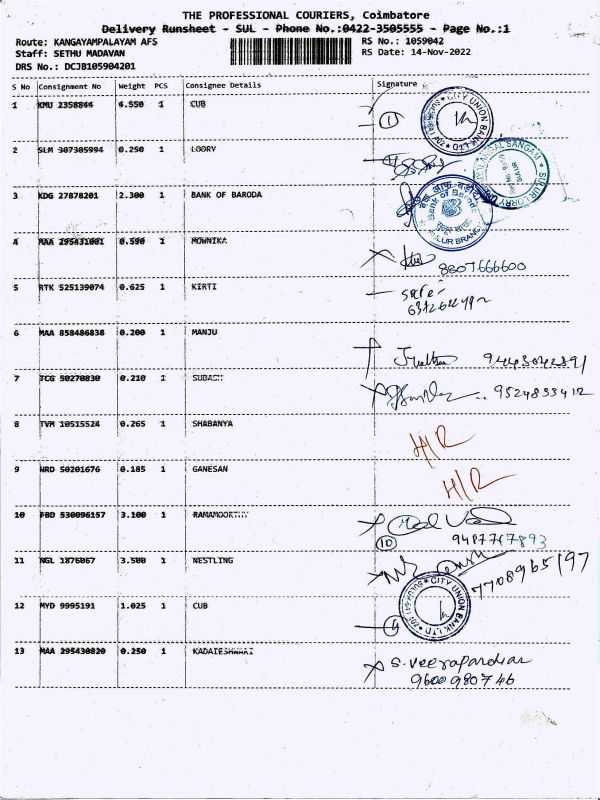 THE PROFESSIONAL COURIERS, Coimbatore
Delivery Runsheet - SUL - Phone No.:0422-3505555 - Page No.:1
Route: KANGAYAMPALAYAM AFS RS No.: 1059042
Staff: SETHU MADAVAN RS Date: 14-Nov-2022
DRS No.: DCJB105904201
S No Consignment No Weight PCS Consignee Details Signature
1 KMU 2358844 4.550 1 CUB
1 CITY UNION BANK LTD
2 SLM 307305994 0.250 1 LOORY
3 KDG 27878201 2.300 1 BANK OF BARODA
Bank of Baroda
SULUR BRANCH
4 MAA 295431001 0.590 1 MOWNIKA
8807666600
5 RTK 525139074 0.625 1 KIRTI
6 MAA 858486838 0.200 1 MANJU
9443042391
7 TCG 50270830 0.210 1 SUBASH
9524833412
8 TVM 10515524 0.265 1 SHABANYA H/R
9 NRD 50201676 0.185 1 GANESAN H/R
10 FBD 530096157 3.100 1
10 9487767893
11 NGL 1876067 3.500 1 NESTLING
7708965197
12 MYD 9995191 1.025 1 CUB
CITY UNION BANK LTD
13 MAA 295430820 0.250 1 KADAIESHWARI
S. Veerapandian
9600980746